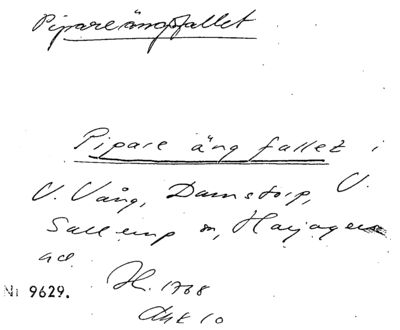 Pipareängsfallet
Pipare äng fallet i
V. Vång, Damstorp, V.
Sallerup sn, Harjagers
hd.
Nr 9629.
H. 1768